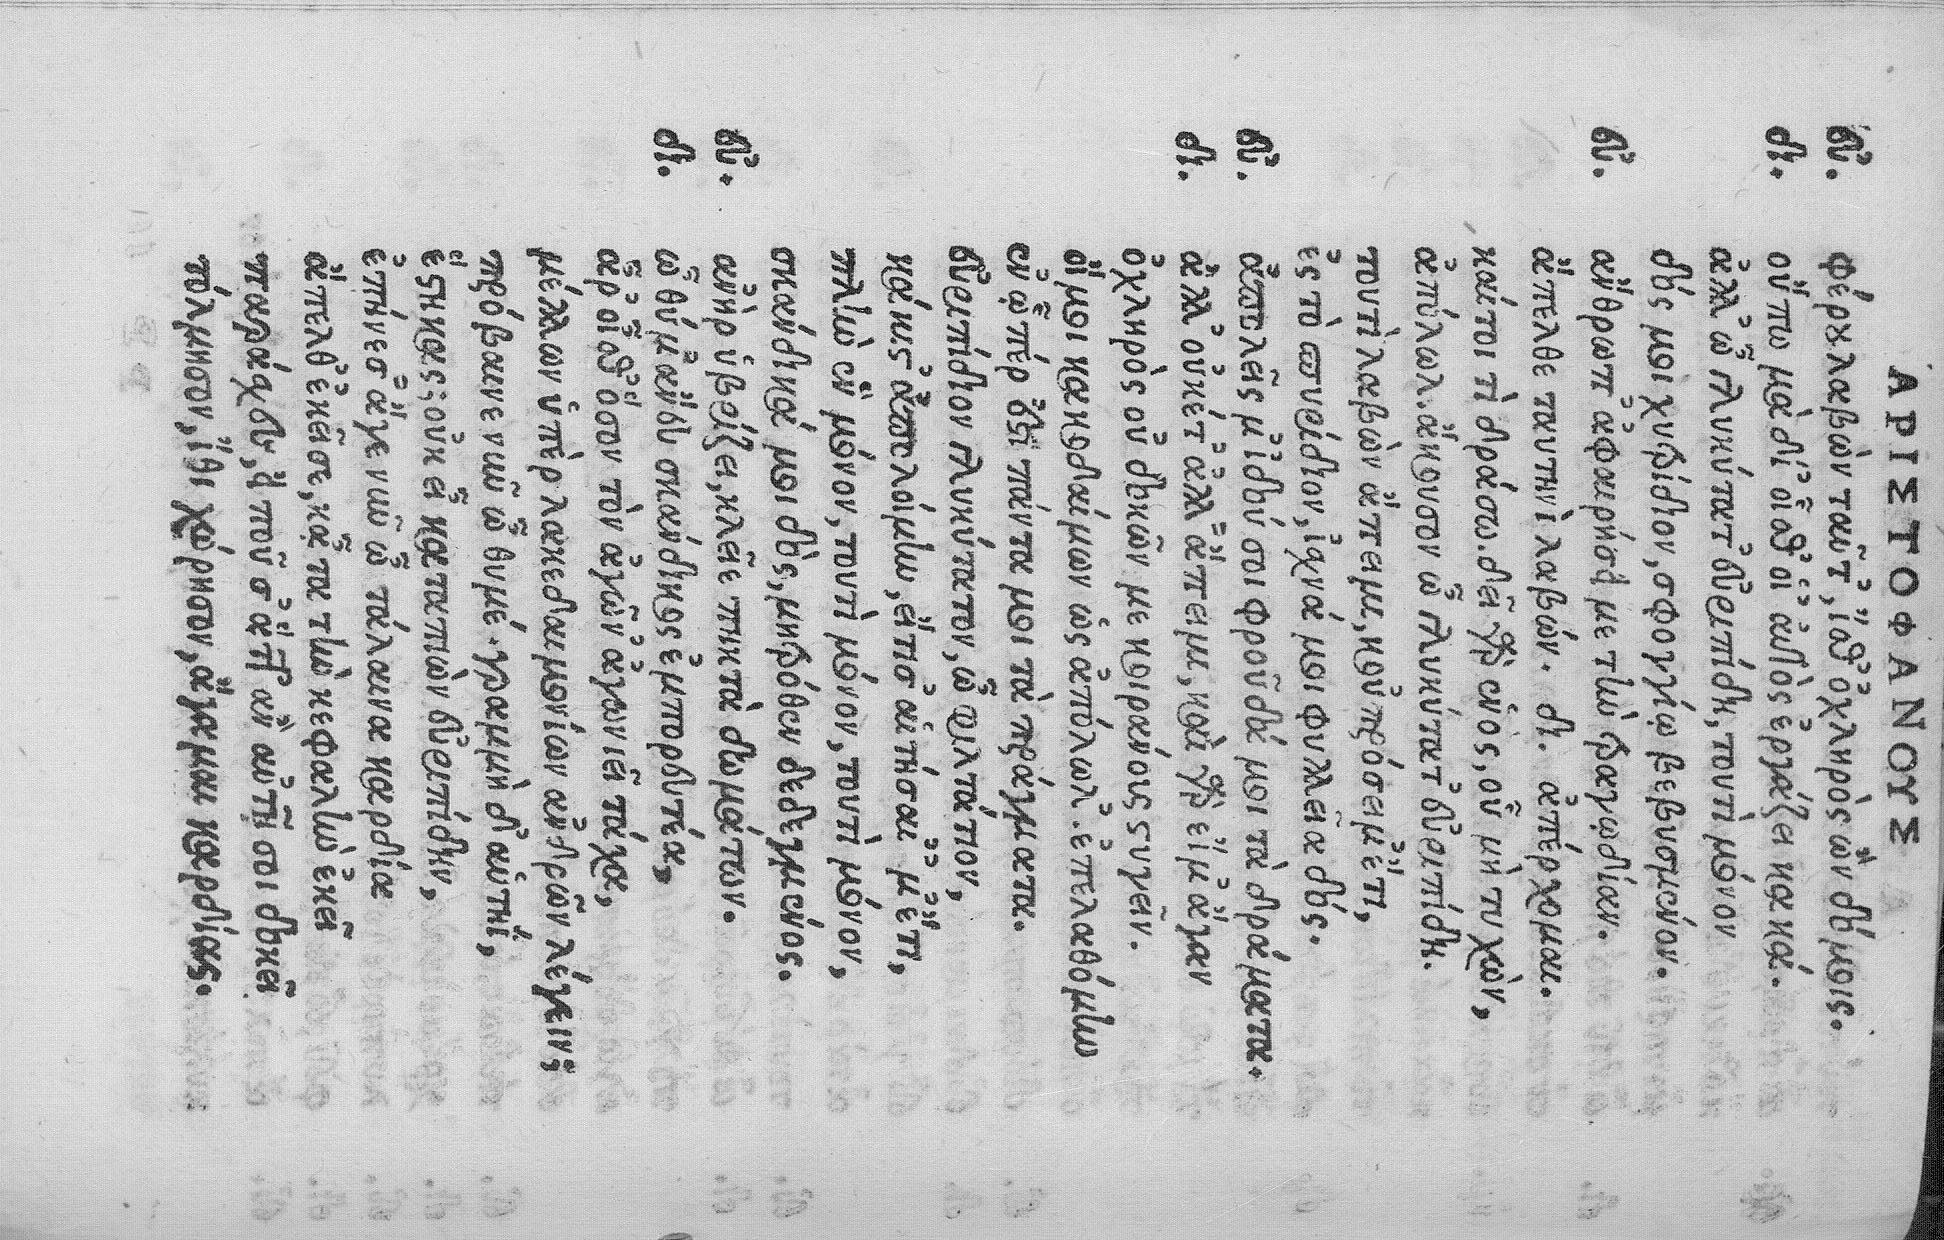 ΑΡΙΣΤΟΦΑΝΟΥΣ
ἐυ. φέρε λαβὼν ταῦτ', ἴσθ' ὀχληρὸς ὢν δόμοις.
δι. οὔπω μὰ δί' οἶσθ' οἷ' αὐτὸς ἐργάζῃ κακά.
ἀλλ' ὦ γλυκύτατ' ἐυριπίδη, τουτὶ μόνον
δός μοι χυτρίδιον, σφογγίῳ βεβυσμένον.
ἐυ. ἄνθρωπ' ἀφαιρήσῃ με τὴν τραγῳδίαν.
ἄπελθε ταυτηνὶ λαβών. δι. ἀπέρχομαι.
καίτοι τί δράσω. δεῖ γὰρ ἑνὸς, οὗ μὴ τυχὼν,
ἀπόλωλ. ἄκουσον ὦ γλυκύτατ' ἐυριπίδη.
τουτὶ λαβὼν ἄπειμι, κοὐ πρόσειμ' ἔτι,
ἐς τὸ σπυρίδιον, ἰσχνά μοι φυλλεῖα δός.
ἐυ. ἀπολεῖς μ' ἰδού σοι φροῦδά μοι τὰ δράματα.
δι. ἀλλ' οὐκέτ' ἀλλ' ἄπειμι, καὶ γὰρ εἰμ' ἄγαν
ὀχληρὸς οὐ δοκῶν με κοιράνους στυγεῖν.
οἴμοι κακοδαίμων ὡς ἀπόλωλ'. ἐπελαθόμην
ἐν ᾧπέρ ἐστι πάντα μοι τὰ πράγματα.
ἐυριπίδιον γλυκύτατον, ὦ φιλτάτιον,
κάκιστ' ἀπολοίμην, εἴτι σ' αἰτήσαιμ' ἔτι,
πλὴν ἓν μόνον, τουτὶ μόνον, τουτὶ μόνον,
σκάνδικά μοι δὸς, μητρόθεν δεδεγμένος.
ἐυ. ἁνὴρ ὑβρίζει, κλεῖε πηκτὰ δωμάτων.
δι. ὦ θύμ' ἄνευ σκάνδικος ἐμπορευτέα,
ἆρ' οἶσθ' ὅσον τὸν ἀγῶν' ἀγωνιεῖ τάχα,
μέλλων ὑπὲρ λακεδαιμονίων ἀνδρῶν λέγειν;
πρόβαινε νῦν ὦ θυμέ. γραμμὴ δ' αὑτηί,
ἕστηκας; οὐκ εἶ καταπιὼν ἐυριπίδην,
ἐπῄνεσ' ἄγε νῦν ὦ τάλαινα καρδία
ἄπελθ' ἐκεῖσε, κᾆτα τὴν κεφαλὴν ἐκεῖ
παράσχες, εἰποῦσ' ἅττ' ἂν αὐτῇ σοι δοκεῖ
τόλμησον, ἴθι χώρησον, ἄγαμαι καρδίας.